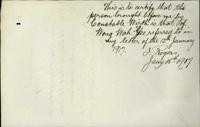 This is to certify that the
person brought before me by
Constable Wirth is that of
Wong Wah Yee referred to in
my letter of the 12th January
1917.
J. Rogers
Jany 15th 1917